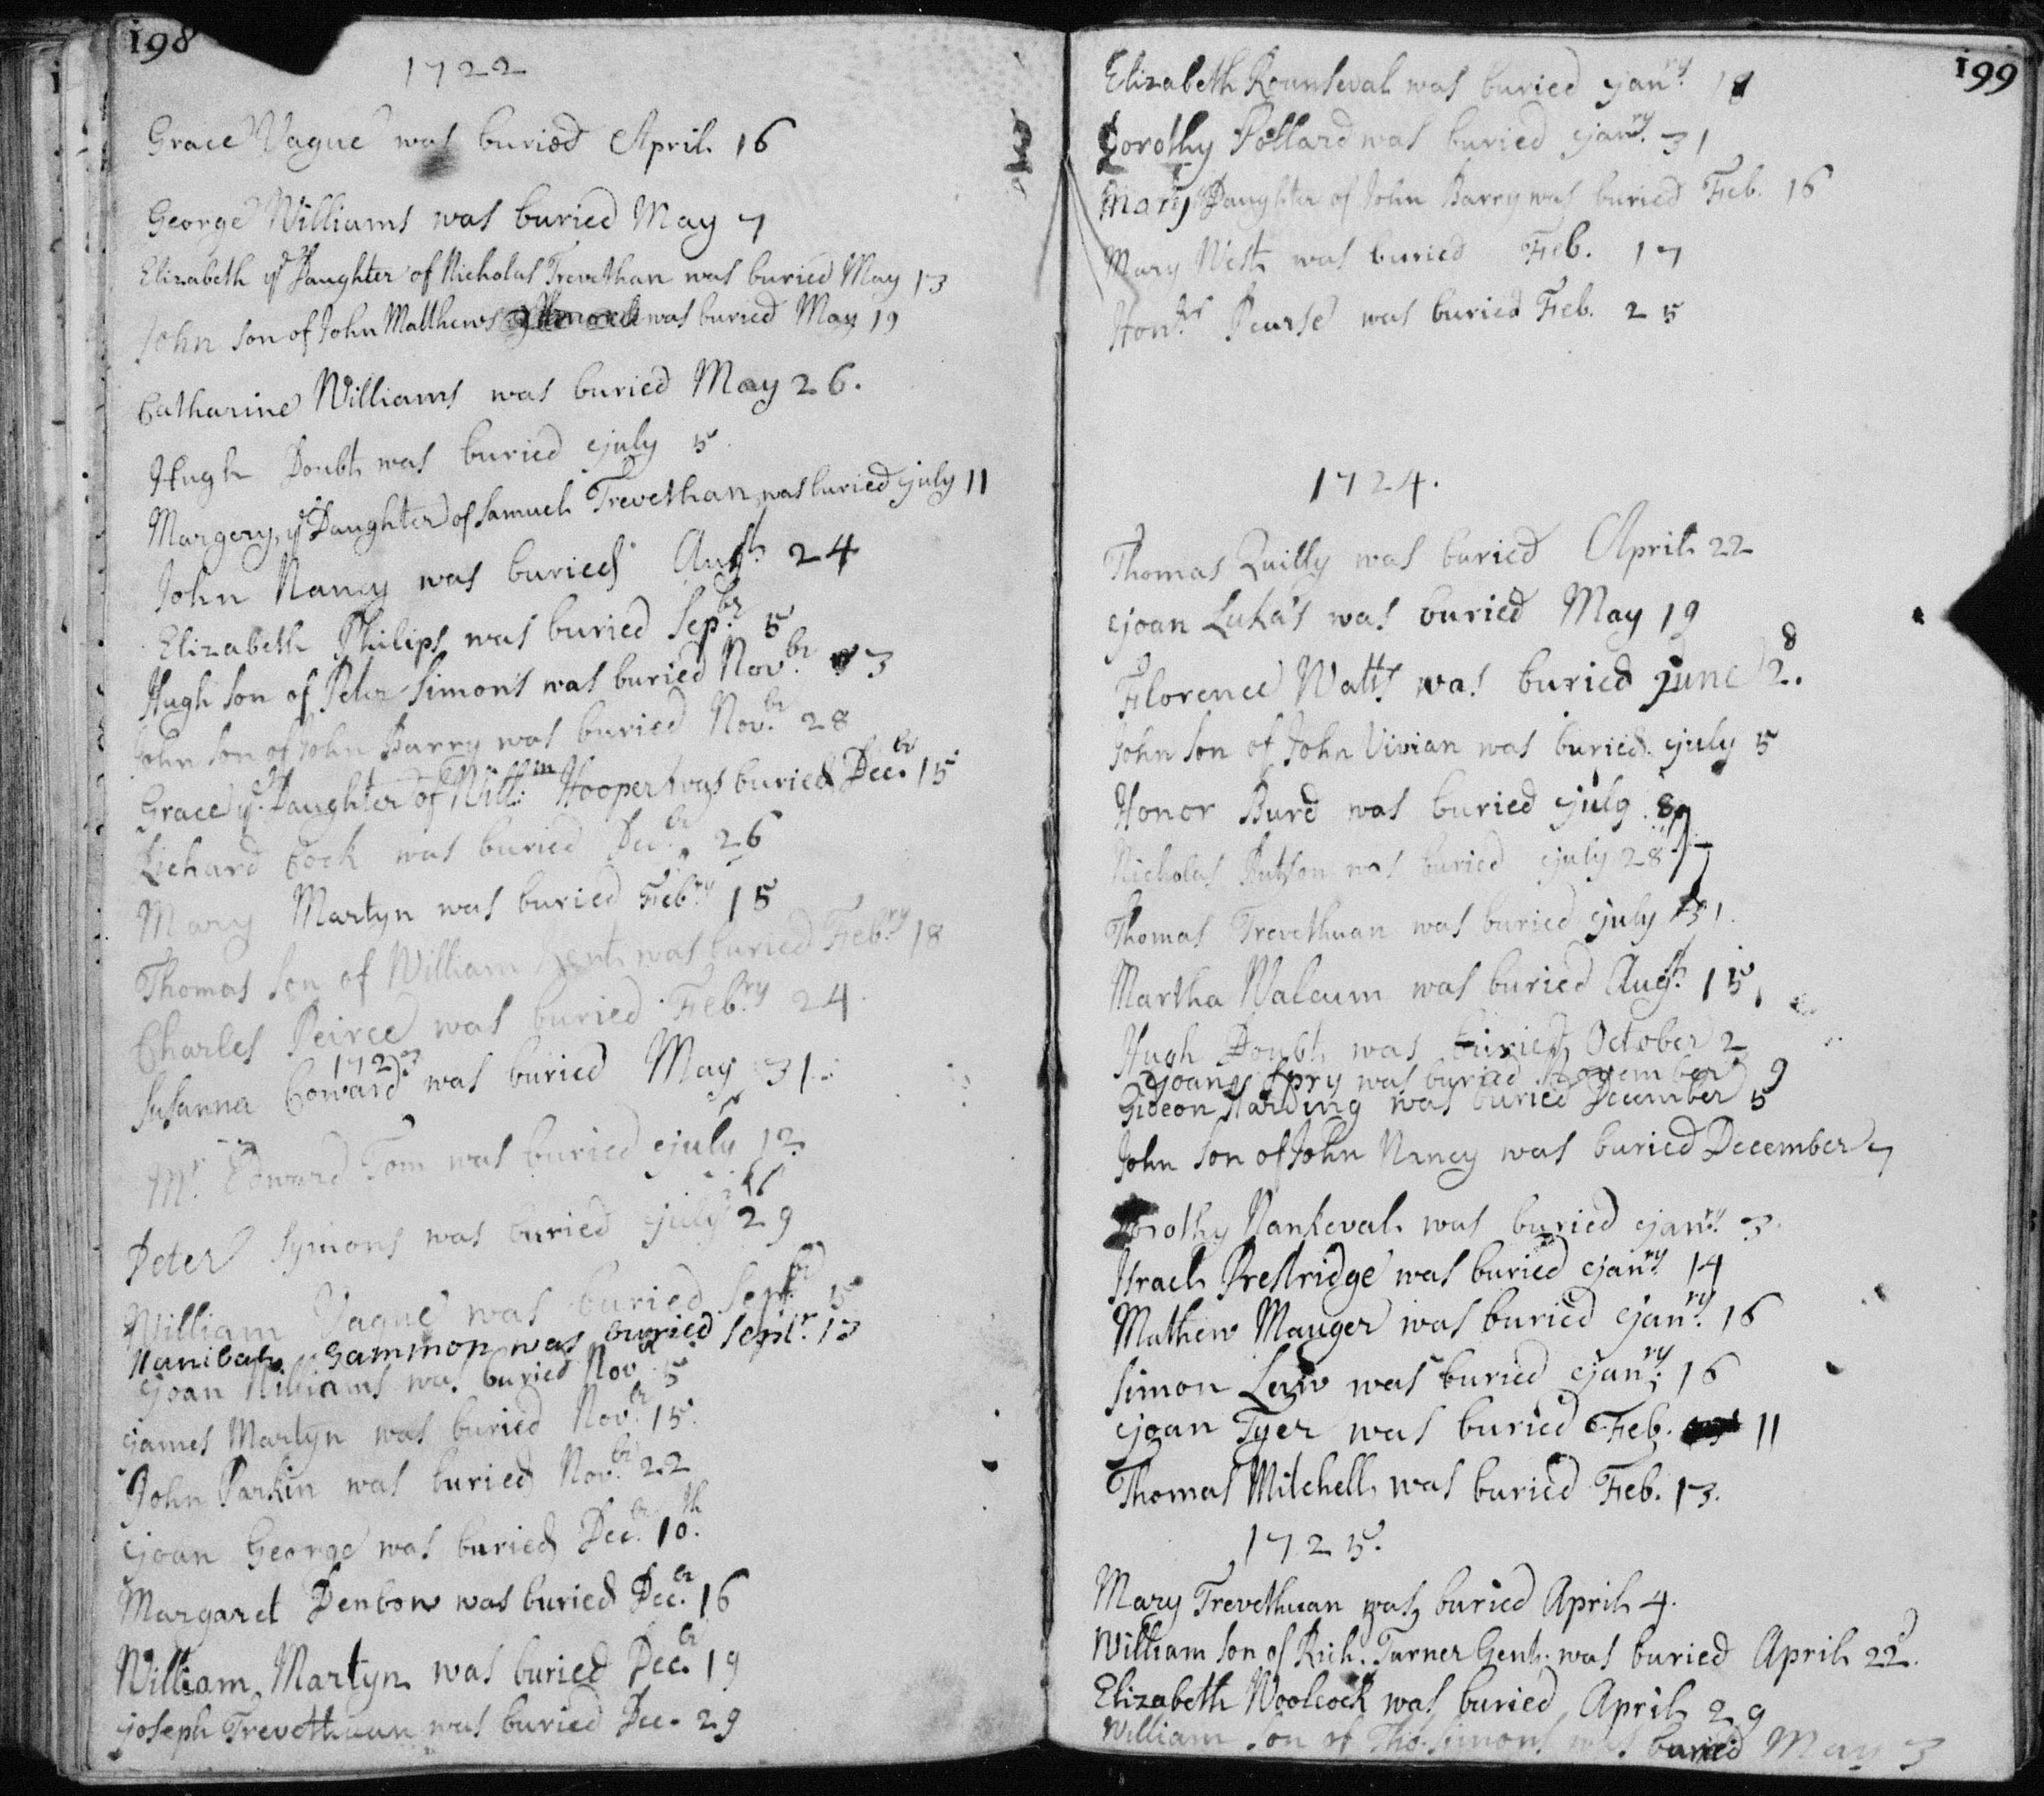 198
1722
Grace Vague was buried April 16
George Williams was buried May 7
Elizabeth ye Daughter of Nicholas Trevethan was buried May 13
John son of John Matthews was buried May 19
Catharine Williams was buried May 26.
Hugh Doubt was buried july 5
Margery, ye Daughter of Samuel Trevethan was buried july 11
John Nancy was buried Augst 24
Elizabeth Philips was buried Sepbr 5
Hugh son of Peter Simons was buried Novbr 3
John son of John Barry was buried Novbr 28
Grace ye Daughter of Willm Hooper was buried Decbr 15
Richard Cock was buried Decbr 26
Mary Martyn was buried Febry 15
Thomas Son of William Kent was buried Febry 18
Charles Peirce was buried Febry 24
1723
Susanna Coward was buried May 31
Mr Edward Tom was buried july 12
Peter Symons was buried july 29
William Vague was buried Sepbr 5
Hanibal Gammon was buried Septr 13
Joan Williams was buried Novbr 5
James Martyn was buried Novbr 15.
John Parkin was buried Novbr 22
Joan George was buried Decbr 10th.
Margaret Denbow was buried Decbr 16
William Martyn was buried Decbr 19
Joseph Trevethuan was buried Dec. 29
199
Elizabeth Rounseval was buried Janry
Dorothy Pollard was buried Janry 31
Mary Daughter of John Barry was buried Feb. 16
Mary West was buried Feb. 17
Honr Pearse was buried Feb. 25
1724.
Thomas Quilly was buried April 22
Joan Luka's was buried May 19
Florence Watts was buried june
John son of John Vivian was buried july 5
Honor Burd was buried july 8
Nicholas Butson was buried july 28
Thomas Trevethuan was buried july 31.
Martha Walcum was buried Augst 15
Hugh Doubt was buried October 2
Joan Spry was buried November 9
Gideon Harding was buried December 5
John son of John Nancy was buried December 7
Dorothy Nankeval was buried Janry 3.
Israel Prestridge was buried Janry 14
Mathew Mauger was buried Janry 16
Simon Law was buried Janry 16
Joan Tyer was buried Feb. 11
Thomas Mitchell was buried Feb. 13.
1725.
Mary Trevethuan was buried April 4.
William son of Rich. Turner Gent. was buried April 22d.
Elizabeth Woolcock was buried April 29
William Son of Tho. Simons was buried May 3